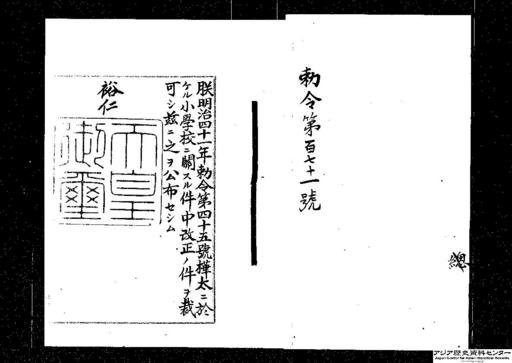 勅令第百七十一號
總
朕明治四十一年勅令第四十五號樺太ニ於
ケル小學校ニ關スル件中改正ノ件ヲ裁
可シ茲ニ之ヲ公布セシム
裕仁
天皇
御璽
アジア歴史資料センター
Japan Center for Asian Historical Records